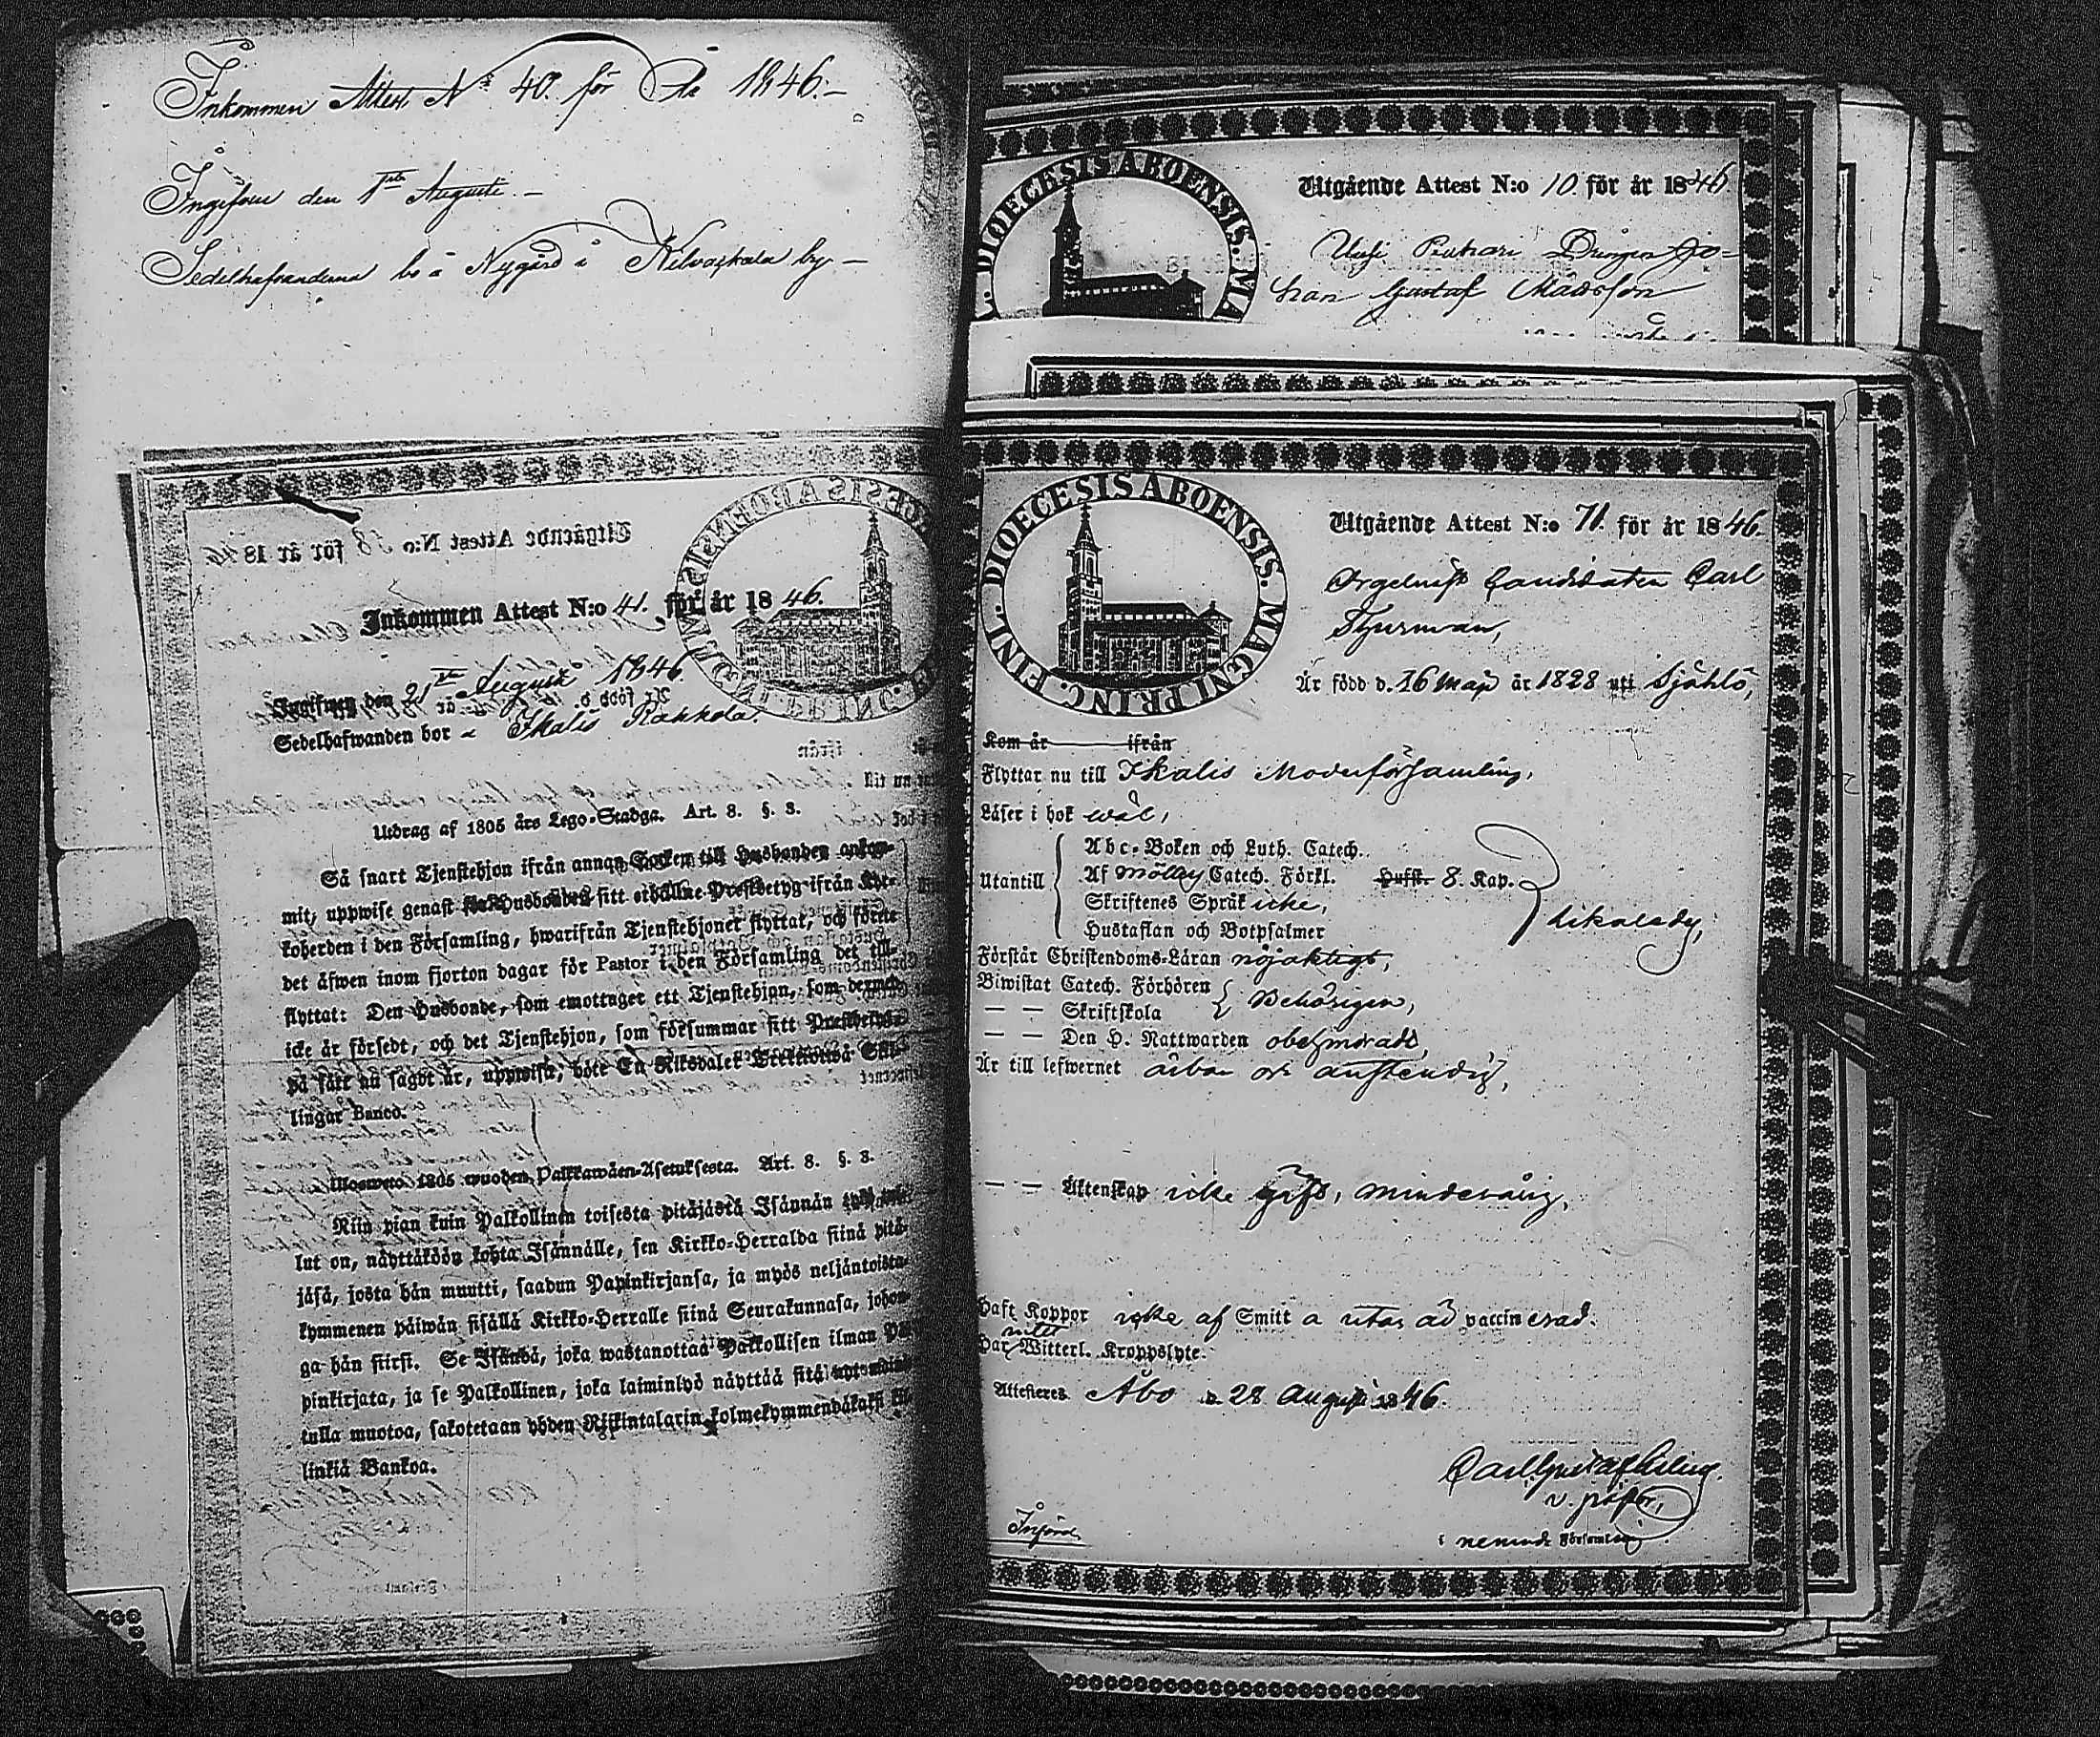 Inkommen Attest N:o 40. för År 1846.–
Ingifven den 1sta Augusti.–
Sedelhafvanderna bo å Nygård i Kilvaskala by–
Utgående Attest N:o 58 för år 1846
Inkommen Attest N:o 41. för år 1846.
Ingifwen den 21sta Augusti 1846
Sedelhafwanden bor i Ikalis Rahkola.
Utdrag af 1805 års Lego-Stadga. Art. 8. §. 3.
Så snart Tjenstehjon ifrån annan Socken till Husbonden ankom-
mit, uppwise genast för Husbonden sitt erhållne Prestbetyg ifrån Kyr-
koherden i den Församling, hwarifrån Tjenstehjonet flyttat, och förete
det äfwen inom fjorton dagar för Pastor i den Församling det till-
flyttat: Den Husbonde, som emottager ett Tjenstehjon, som dermed
icke är försedt, och det Tjenstehjon, som försummar sitt Prestbetyg
på sätt nu sagdt är, uppwisa, böte En Riksdaler Trettiotwå Skil-
lingar Banco.
Ulosweto 1805 wuoden Palkkawäen-Asetuksesta. Art. 8. §. 3.
Niin pian kuin Palkollinen toisesta pitäjästä Isännän työö tul-
lut on, näyttäköön kohta Isännälle, sen Kirkko-Herralda siinä pitä-
jäsä, josta hän muutti, saadun Papinkirjansa, ja myös neljäntoista-
kymmenen päiwän sisällä Kirkko-Herralle siinä Seurakunnasa, johon-
ga hän siirsi. Se Isändä, joka wastanottaa Palkollisen ilman Pa-
pinkirjata, ja se Palkollinen, joka laiminlyö näyttää sitä nytsanoi-
tulla muotoa, sakotetaan yhden Rijkintalarin kolmekymmendäkaksi kil-
linkiä Bankoa.
DIOECESIS ABOENSIS. MA
Utgående Attest N:o 10 för år 1846
Drängen Jo-
han Gustaf Mattsson
DIOECESIS ABOENSIS. MAGNI PRINC. FINL.
Utgående Attest N:o 71. för år 1846.
Orgelnist Candidaten Carl
Styrman,
Är född d. 16 Maji år 1828 uti Sjählö,
Kom år ifrån
Flyttar nu till Ikalis Moderförsamling,
Läser i bok wäl,
Abc-Boken och Luth. Catech.
Utantill Af Möllers Catech. Förkl. Hufst. 8. Kap.
Skriftenes Språk icke,
likaledes,
Hustaflan och Botpsalmer
Förstår Christendoms-Läran nöjaktigt,
Biwistat Catech. Förhören
Behörigen,
— — Skriftskola
— — Den H. Nattwarden obehindradt
Är till lefwernet ärbar och anständig,
— — Äktenskap icke gift, minderårig,
Haft Koppor icke af Smitta utan är vaccinerad.
intet
Har Witterl. Kroppslyte.
Attesteres Åbo d. 28 Augusti 1846.
v. pastor,
i nemnde Församling
Införd